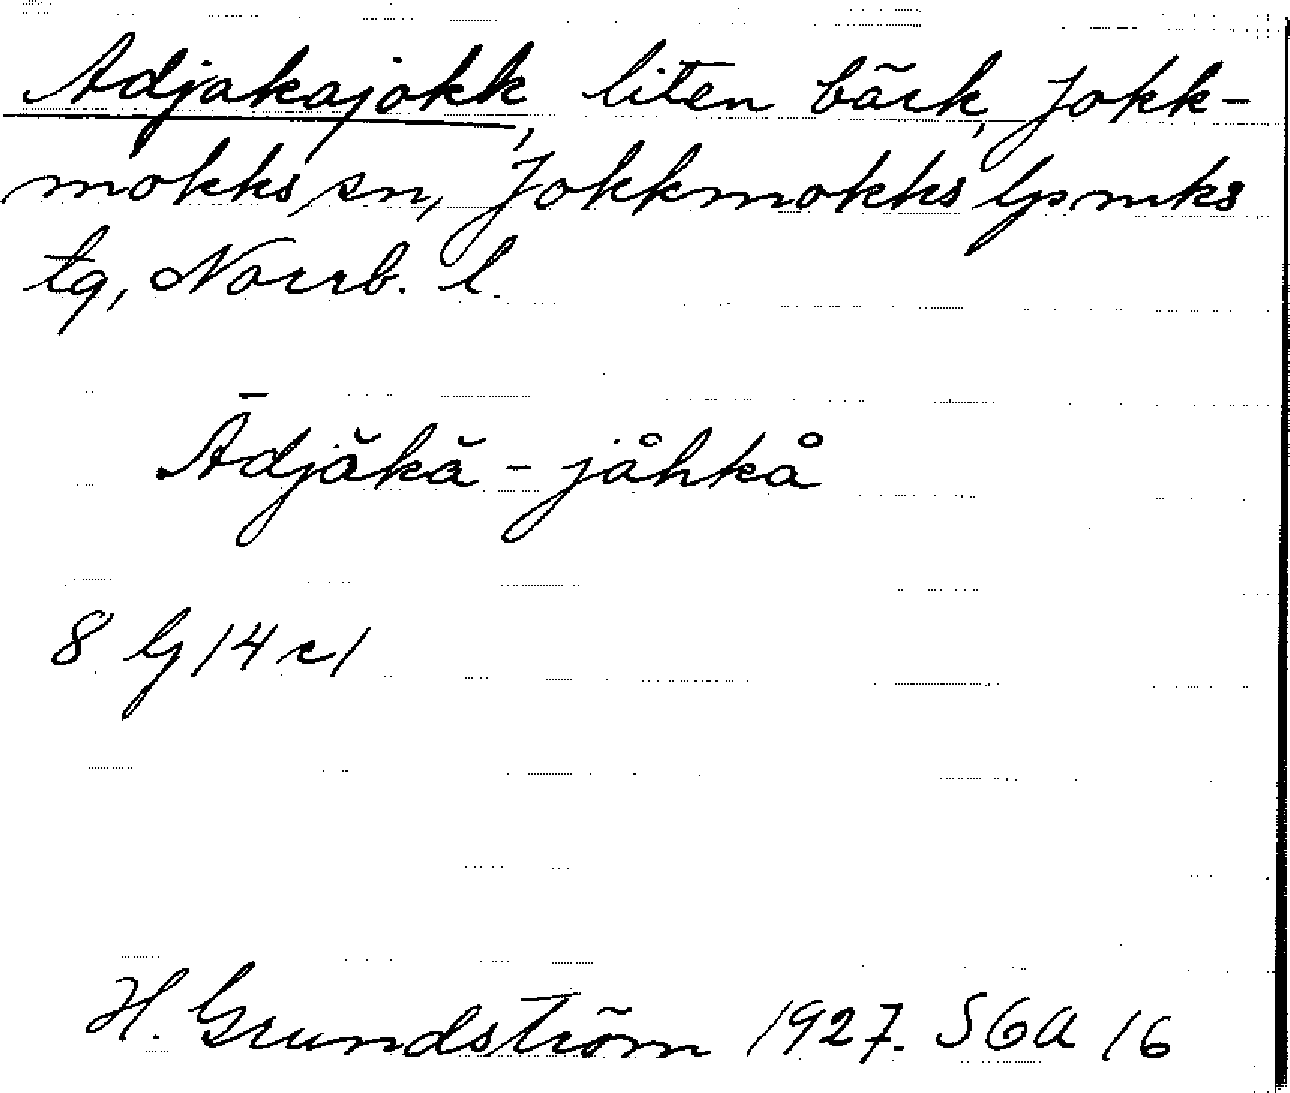 Adjakajokk, liten bäck, Jokk-
mokks sn, Jokkmokks lpmks
tg, Norrb. l.
Ādjăkă-jåhkå
8 G/4c/
H. Grundström 1927. SGA 16